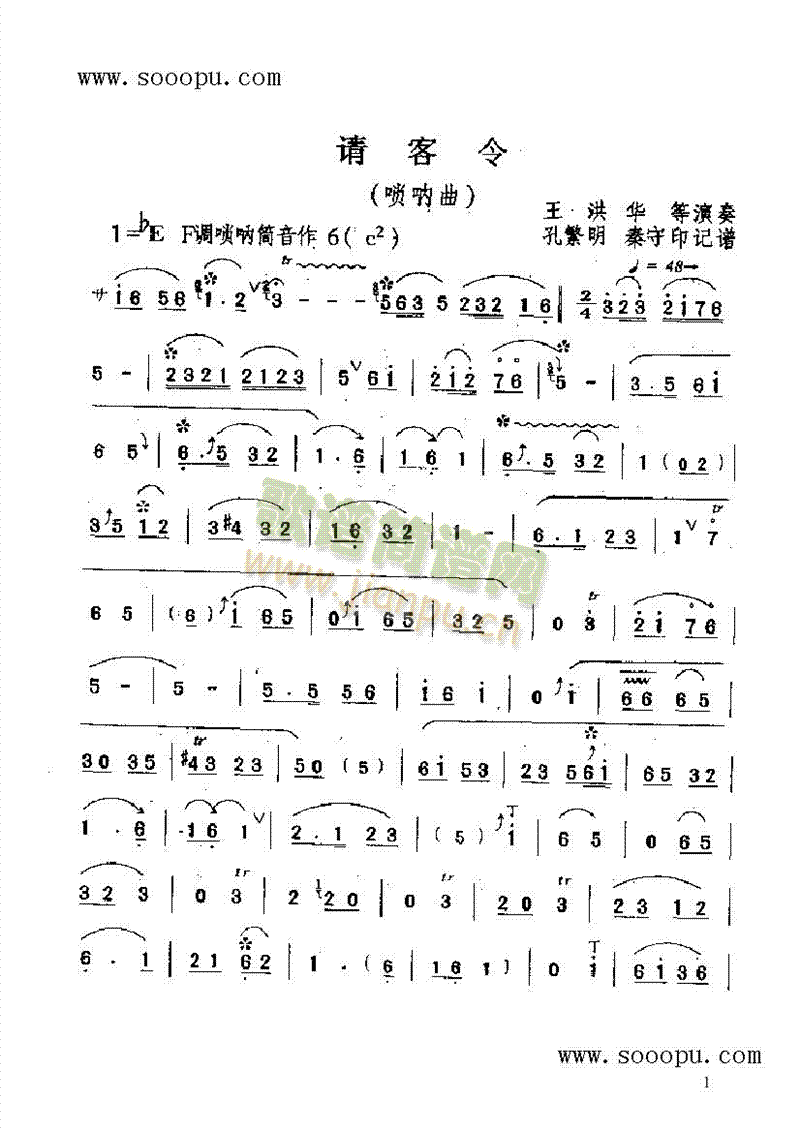 www.sooopu.com
请客令
(唢呐曲)
王洪华等演奏
1=♭E F调唢呐筒音作6(c²) 孔繁明 秦守印记谱
tr ♩=48→
サ i6 56 1·2 3 - - - 563 5 232 16 ‖ 2/4 323 2176
5 - | 2321 2123 | 5 6i | 2i2 76 | 5 - | 3·5 6i
6 5 | 6·5 32 | 1·6 | 16 1 | 6·5 32 | 1 (02) |
tr
35 12 | 3#4 32 | 16 32 | 1 - | 6·1 23 | 1 7
tr
6 5 | (6) i 65 | 0i 65 | 325 | 0 3 | 2i 76 |
5 - | 5 - | 5·5 56 | i6 i | 0 i | 66 65 |
tr
30 35 | #43 23 | 50 (5) | 6i 53 | 23 56i | 65 32 |
1·6 | 16 1 | 2·1 23 | (5) i | 6 5 | 0 65 |
tr tr tr
323 | 0 3 | 2 20 | 0 3 | 20 3 | 23 12 |
6·1 | 21 62 | 1·(6 | 16 1) | 0 i | 6i36 |
歌谱简谱网
www.jianpu.cn
www.sooopu.com
1